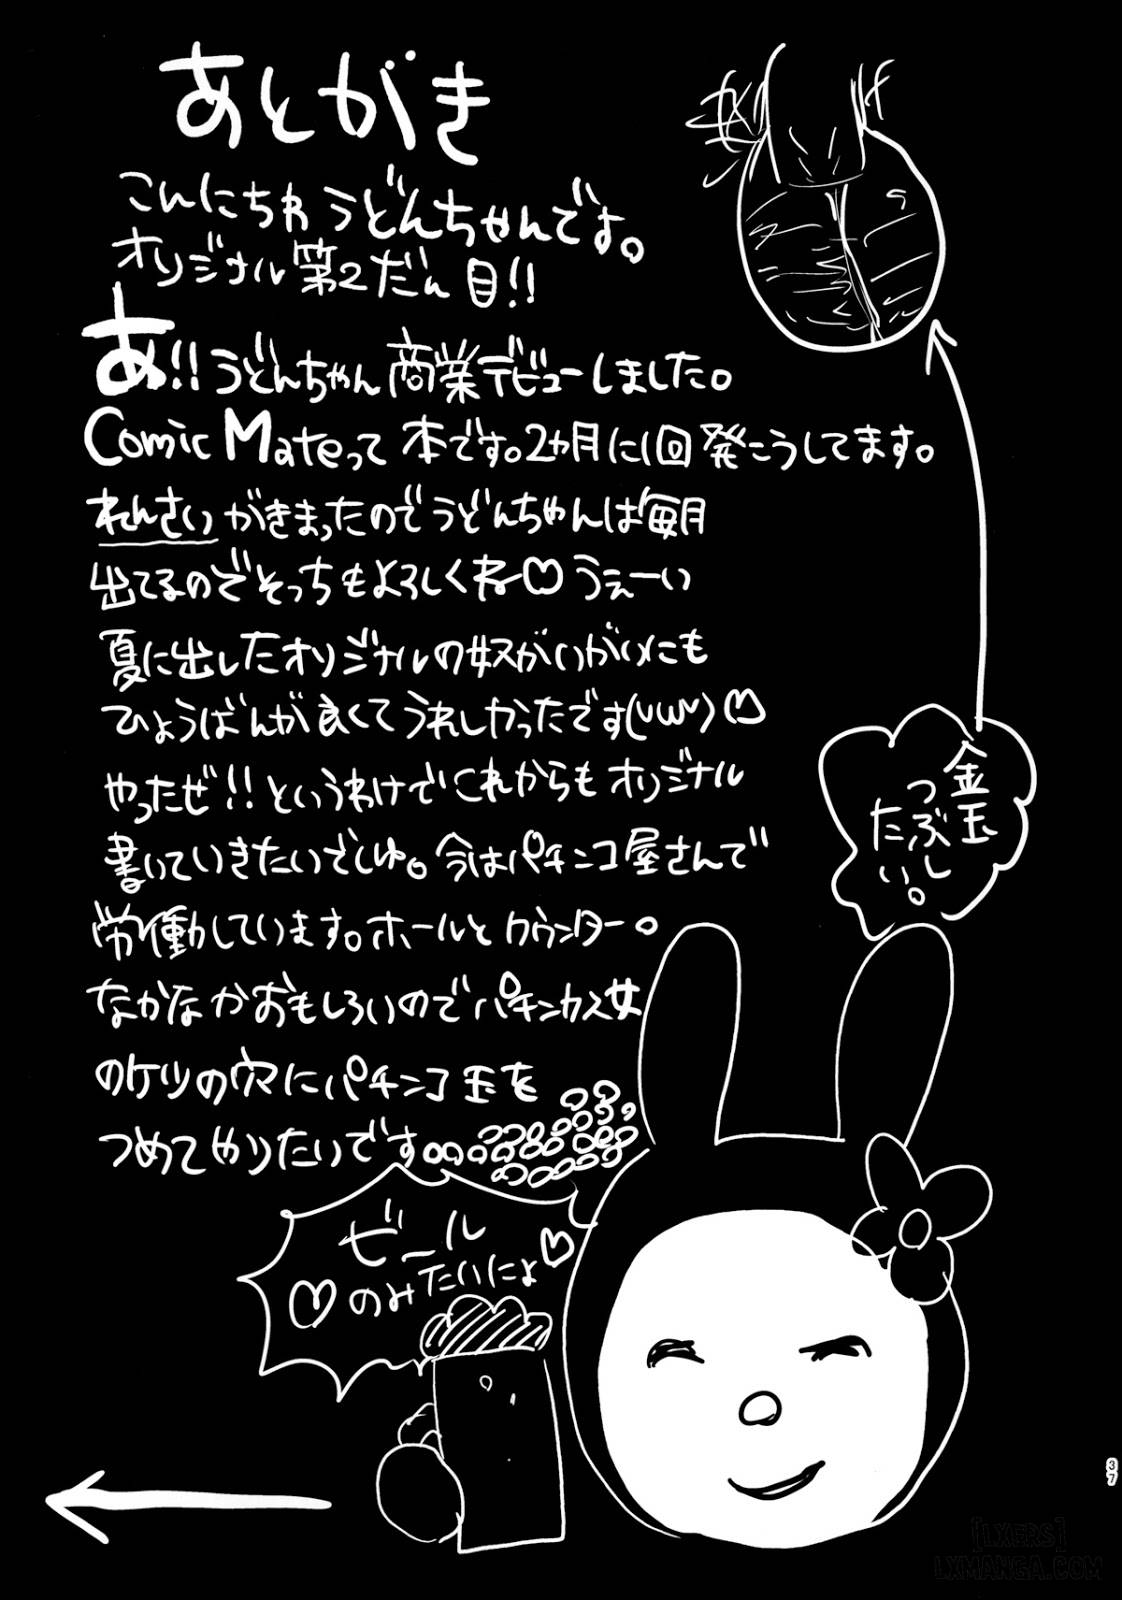 あとがき
こんにちわ うどんちゃんです。
オリジナル第2だん目!!
あ!!うどんちゃん商業デビューしました。
Comic Mateって本です。2ヵ月に1回発こうしてます。
れんさいがきまったのでうどんちゃんは毎月
出てるのでそっちもよろしくね♡うぇーい
夏に出したオリジナルの奴がいがいにも
ひょうばんが良くてうれしかったです(uwu)♡
やったぜ!!というわけでこれからもオリジナル
書いていきたいでしゅ。今はパチンコ屋さんで
労働しています。ホールとカウンター。
なかなかおもしろいのでパチンカス女
のケツの穴にパチンコ玉を
つめてやりたいです。
金玉
つぶし
たい。
ビール
♡のみたいにょ♡
37
[LXERS]
LXMANGA.COM